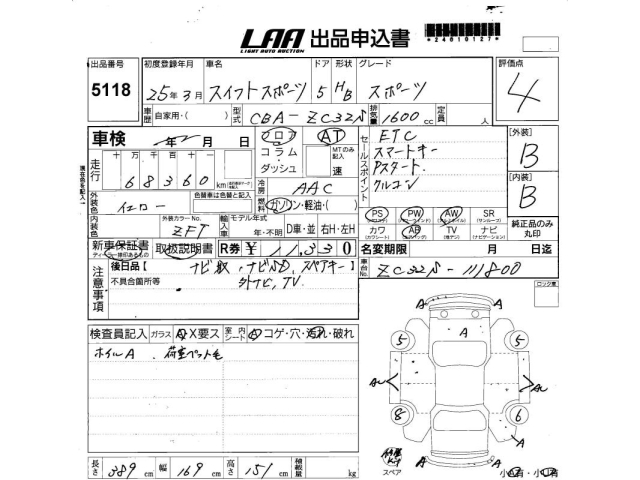 LAA 出品申込書
LIGHT AUTO AUCTION
*24010127*
出品番号 初度登録年月 車名 ドア 形状 グレード 評価点
5118 25年3月 スイフトスポーツ 5 HB スポーツ 4
車歴 自家用・( ) 型式 CBA-ZC32S 排気量 1600cc 定員 人
車検 年 月 日 フロア コラム・ダッシュ AT MTのみ記入 速
セールスポイント ETC
スマートキー
Pスタート
クルコン
[外装] B
[内装] B
走行 十万 万 千 百 十
68360km
冷房 AAC
燃料 ガソリン・軽油・( )
外装色 イエロー 色替車は色替と記入
外装カラーNo. ZFT 輸入車 モデル年式 年・不明 D車・並 右H・左H
PS PW AW SR(サンルーフ)
カワ(カワシート) AB TV(地デジ) ナビ(ナビゲーション)
純正品のみ丸印
現在色を記入
新車保証書 取扱説明書 R券 ¥11,330 名変期限 月 日迄
注意事項 後日品【ナビ取、ナビSD、スペアキー】
不具合箇所等 外ナビ、TV
車台No. ZC32S-111800
ロック車
検査員記入 ガラス A・X要ス 室内シート A・コゲ・穴・汚れ・破れ
ホイルA 荷室ペット毛
A A
5 5
A A
8 6
A
A A
スペア
小A有・小U有
長さ 389cm 幅 169cm 高さ 151cm 積載量 kg